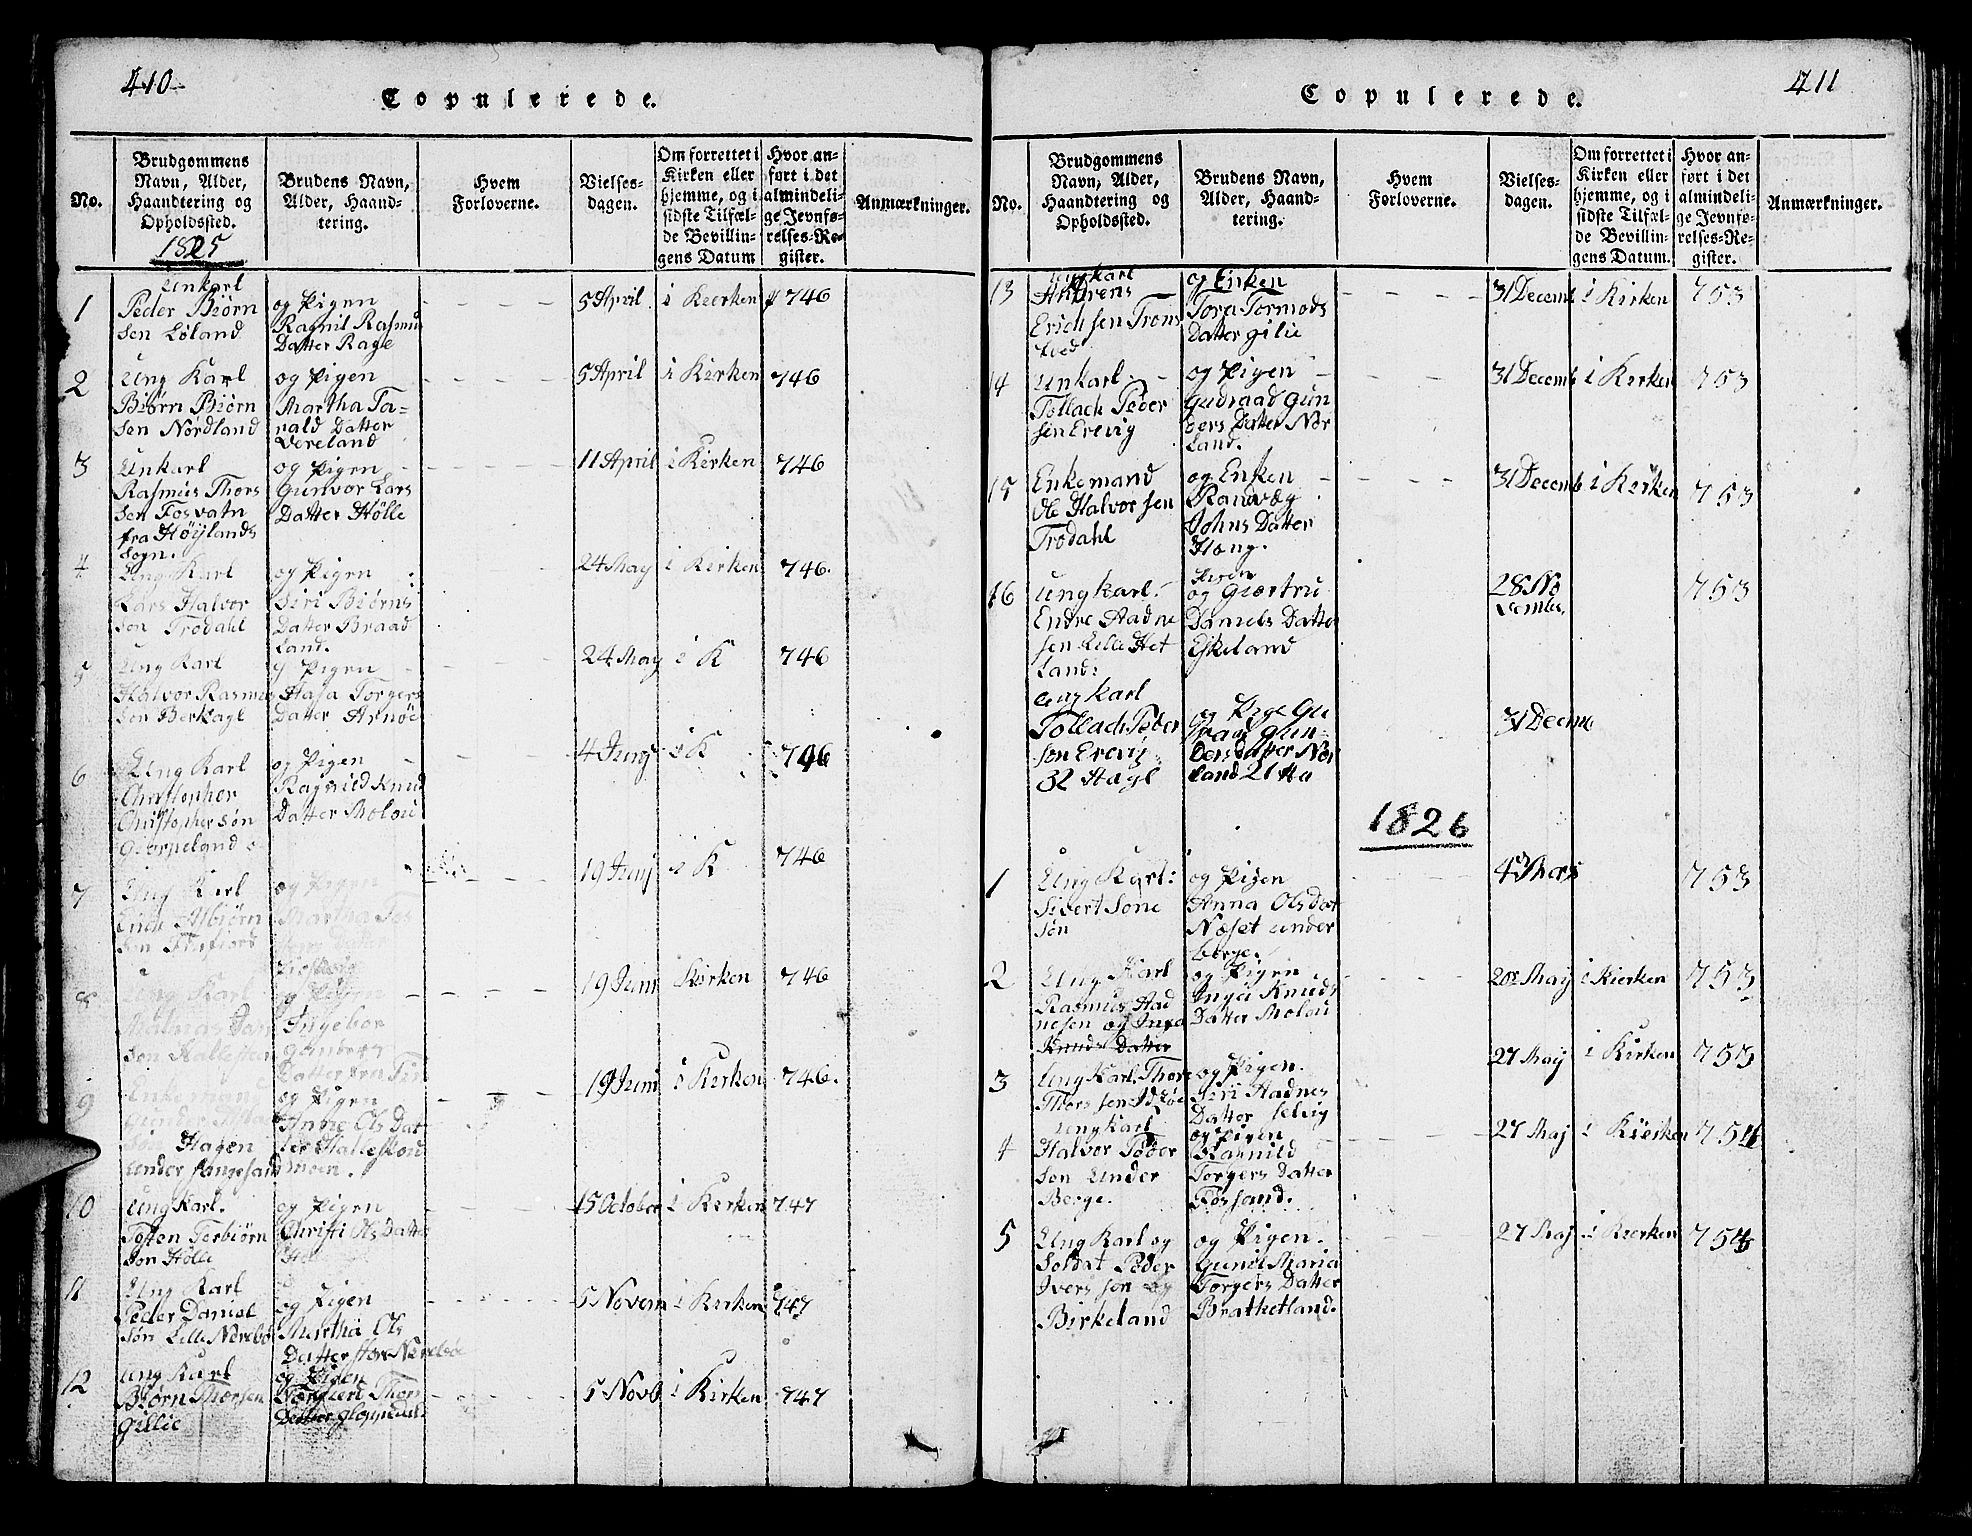 410
Copulerede.
No.
Brudgommens
Navn, Alder,
Haandtering og
Opholdssted.
Brudens Navn,
Alder, Haand-
tering.
Hvem
Forloverne.
Vielses-
dagen.
Om forrettet i
Kirken eller
hjemme, og i
sidste Tilfæl-
de Bevillin-
gens Datum
Hvor an-
ført i det
almindeli-
ge Jevnfø-
relses-Re-
gister.
Anmærkninger.
1825
1
Unkarl
Peder Biørn
sen Løland
og Pigen
Ragnil Rasmus
Datter Rage
5 April
i Kierken
746
2
Ung Karl
Biørn Biørn
sen Nordland
og Pigen
Martha Ta-
rald Datter
Vereland
5 April
i Kirken
746
3
Unkarl
Rasmus Thors
sen Fosvatn
fra Høylands
Sogn.
og Pigen
Gunvor Lars
Datter Hølle
11 April
i Kirken
746
4
Ung Karl
Lars Halvor
søn Trodahl
og Pigen
Siri Biørns
Datter Braad
Land.
24 May
i Kirken
746.
5
Ung Karl
Halvor Rasmus
søn Berkagl
og Pigen
Aasa Torgers
Datter Arnøe
24 May
i K
746
6
Ung Karl
Christopher
Christophersøn
Giørpeland
og Pigen
Ragnild Knud
Datter Molou
4 Juny
i K
746
7
Ung Karl
Erich Asbiørn
søn Finfiord
og Pigen
Martha
Datter
19 Juny
i K
746
8
Ung Karl
søn
og Pigen
Ingebor
Datter
19 Juni
Kirken
746
9
Enkemand
Hagen
under
og Pigen
Anne Ols Dat
ter Halleskou
moen.
19 Juni
i Kirken
746.
10
Ung Karl.
Tosten Torbiørn
søn Hølle
og Pigen
Christi Ols Datte
15 October
i Kirken
747
11
Ung Karl
Peder Daniel
søn Lille Norebø
og Pigen
Martha Ols
Datter stor Norebø
5 Novem
i Kirken
747
12
Ung Karl
Biørn Thorsen
Gillie
og Pigen
Thors
Datter
5 Novb
i Kirken
747
411
Copulerede.
No.
Brudgommens
Navn, Alder,
Haandtering og
Opholdssted.
Brudens Navn,
Alder, Haand-
tering.
Hvem
Forloverne.
Vielses-
dagen.
Om forrettet i
Kirken eller
hjemme, og i
sidste Tilfæl-
de Bevillin-
gens Datum.
Hvor an-
ført i det
almindeli-
ge Jevnfø-
relses-Re-
gister.
Anmærkninger.
13
Ungkarl
Erichsen Trons
og Enken
Tora Tormods
Datter gilie
31 Decemb
i Kirken
753
14
Unkarl
Tollach Peder
sen Erevig
og Pigen
Gudraad Gun
ders Datter Nor
Land.
31 Decemb
i Kirken
753
15
Enkemand
Ole Halvorsen
Trodahl
og Enken
Randvæg
Johns Datter
Hæng.
31 Decemb
i Kirken
753
16
Ung karl
Endre Aadne
sen Lille Het
Land:
og Giærtru
Daniels Datter
Eskeland
28 No
vember.
753
Ung karl
Tollach Peder
søn Erevig
32 Aagl
og Pige Gu
Gun-
dersdatter Nor
land 21
31 Decemb
1826
1
Ung Karl:
Sivert Sone
søn
og Pigen
Anna Ols Dat
Næset under
berge.
4 Mars
753
2
Ung Karl
Rasmus Aad
nesen og Inga
Knuds Datter
og Pigen
Inga Knuds
Datter Molou
20 May
i Kierken
753
3
Ung Karl Thore
Thorssen
og Pigen.
Siri Aadnes
Datter selvig
27 May
i Kirken
753
4
Ungkarl
Halvor Peder
søn under
Berge.
og Pigen
Ragnild
Torgers Datter
Fossand.
27 Maj
i Kierken
754
5
Ung Karl og
Soldat Peder
Iverssøn og
Birkeland
og Pigen.
Gunil Maria
Torgers Datter
Bratketland.
27 Maj
i Kierken
754